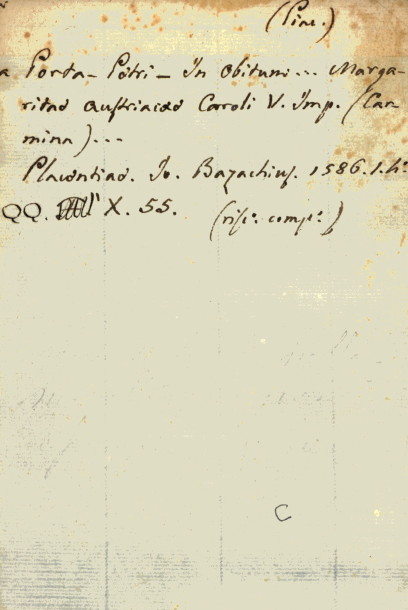 (Piac.)
a Porta - Petri - In obitum... Marga-
ritae Austriacae Caroli V. Imp. (Car-
mina)...
Placentiae. Io. Bazachius. 1586. 1. 4°
QQ. X. 55. (risc.ᵒ comp.ᵒ)
C